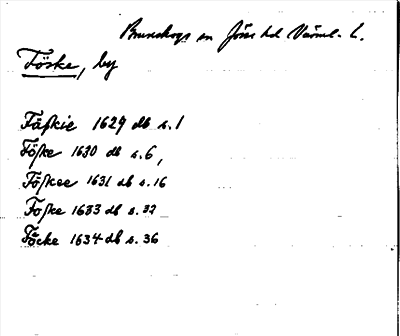 Brunskogs sn Jösse hd Värml. l.
Töske, by
Täſkie 1629 db s. 1
Töſke 1630 db s. 6,
Töſkee 1631 db s. 16
Toſke 1633 db s. 32
Töcke 1634 db s. 36